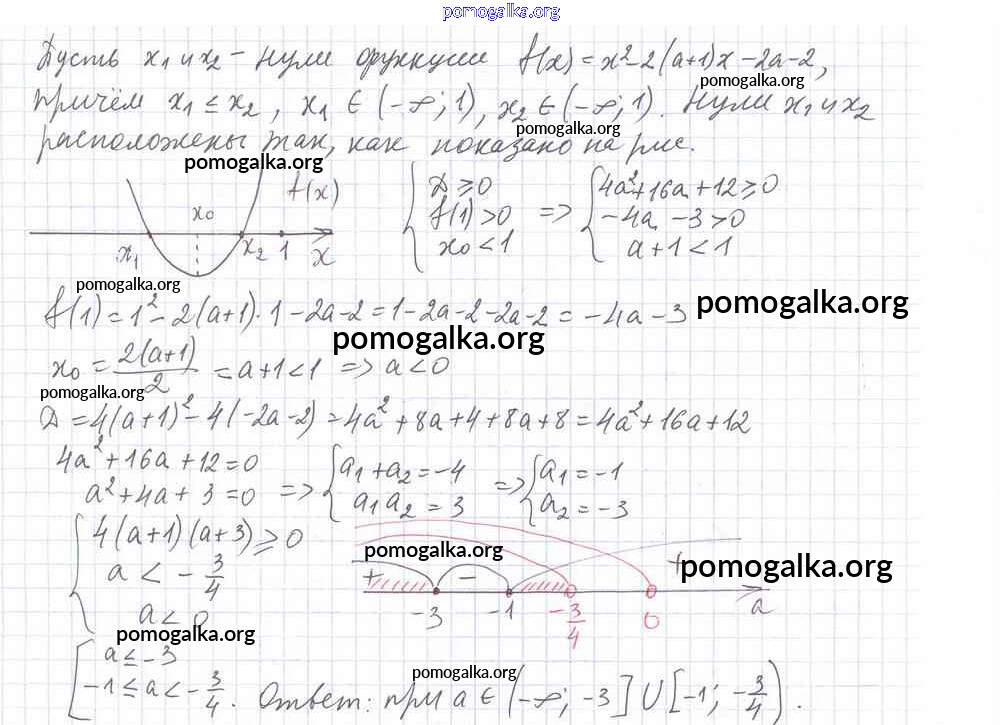 pomogalka.org
Пусть x₁ и x₂ – нули функции f(x) = x² – 2(a+1)x – 2a – 2,
pomogalka.org
причём x₁ ≤ x₂, x₁ ∈ (–∞; 1), x₂ ∈ (–∞; 1). Нули x₁ и x₂
pomogalka.org
расположены так, как показано на рис.
pomogalka.org
f(x) x₀ x₁ x₂ 1 x
{ D ≥ 0 => { 4a² + 16a + 12 ≥ 0
f(1) > 0 –4a – 3 > 0
x₀ < 1 a + 1 < 1
pomogalka.org
f(1) = 1² – 2(a+1)·1 – 2a – 2 = 1 – 2a – 2 – 2a – 2 = –4a – 3
pomogalka.org
pomogalka.org
x₀ = 2(a+1)/2 = a + 1 < 1 => a < 0
pomogalka.org
D = 4(a+1)² – 4(–2a–2) = 4a² + 8a + 4 + 8a + 8 = 4a² + 16a + 12
4a² + 16a + 12 = 0
a² + 4a + 3 = 0 => { a₁ + a₂ = –4
a₁a₂ = 3 => { a₁ = –1
a₂ = –3
{ 4(a+1)(a+3) ≥ 0
a < –3/4
a < 0
pomogalka.org
pomogalka.org
+ – +
–3 –1 –3/4 0 a
pomogalka.org
[ a ≤ –3
–1 ≤ a < –3/4.
pomogalka.org
Ответ: при a ∈ (–∞; –3] ∪ [–1; –3/4).